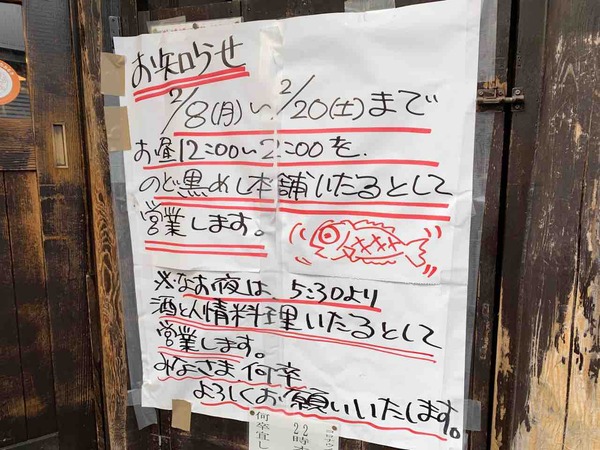 お知らせ
2/8(月)~2/20(土)まで
お昼12:00~2:00を
のど黒めし本舗いたるとして
営業します。
※なお夜は、5:30より
酒と人情料理いたるとして
営業します。
みなさま何卒
よろしくお願いいたします。
22時
何卒宜し